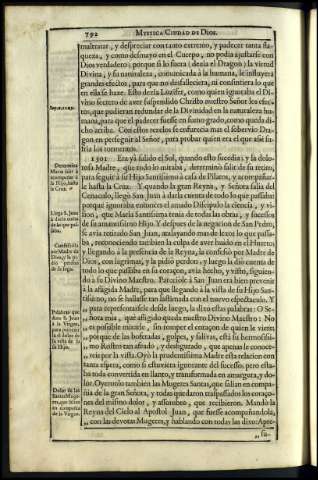 792
MYSTICA CIUDAD DE DIOS.
maltratar, y despreciar con tanto extremo, y padecer tanta fla-
queza, y como desmayo en el Cuerpo, no podia ajustarse con
Dios verdadero; porque si lo fuera (dezia el Dragon) la virtud
Divina, y su naturaleza, comunicada à la humana, le influyera
grandes efectos, para que no desfalleciera, ni consintiera lo que
en ella se haze. Esto dezia Luzifer, como quien ignorava el Di-
vino secreto de aver suspendido Christo nuestro Señor los efec-
tos, que pudieran redundar de la Divinidad en la naturaleza hu-
mana, para que el padecer fuesse en sumo grado, como queda di-
cho arriba. Con estos rezelos se enfurecia mas el sobervio Dra-
gon en perseguir al Señor, para probar quien era el que assi su-
fria los tormentos.
1501 Era yà salido el Sol, quando esto sucedia; y la dolo-
rosa Madre, que todo lo mirava, determinò salir de su retiro,
para seguir à su Hijo Santissimo à casa de Pilatos, y acompañar-
le hasta la Cruz. Y quando la gran Reyna, y Señora salia del
Cenaculo, llegò San Juan à darla cuenta de todo lo que passaba;
porque ignoraba entonces el amado Discipulo la ciencia, y vi-
sion, que Maria Santissima tenia de todas las obras, y sucessos
de su amantissimo Hijo. Y despues de la negacion de San Pedro,
se avia retirado San Juan, atalayando mas de lexos lo que passa-
ba, reconociendo tambien la culpa de aver huido en el Huerto;
y llegando à la presencia de la Reyna, la confessò por Madre de
Dios, con lagrimas, y la pidiò perdon; y luego la diò cuenta de
todo lo que passaba en su coraçon, avia hecho, y visto, siguien-
do à su Divino Maestro. Pareciòle à San Juan era bien prevenir
à la afligida Madre, para que llegando à la vista de su Hijo San-
tissimo, no se hallasse tan lastimada con el nuevo espectaculo. Y
para representarsele desde luego, la dixo estas palabras: O Se-
ñora mia, què afligido queda nuestro Divino Maestro! No
es possible mirarle, sin romper el coraçon de quien le viere;
porque de las bofetadas, golpes, y salivas, està su hermosissi-
mo Rostro tan afeado, y desfigurado, que apenas le conoce-
reis por la vista. Oyò la prudentissima Madre esta relacion con
tanta espera, como si estuviera ignorante del sucesso; pero esta-
ba toda convertida en llanto, y transformada en amargura, y do-
lor. Oyeronlo tambien las Mugeres Santas, que salian en compa-
ñia de la gran Señora, y todas quedaron traspassados los coraço-
nes del mismo dolor, y assombro, que recibieron. Mandò la
Reyna del Cielo al Apostol Juan, que fuesse acompañandola,
con las devotas Mugeres, y hablando con todas las dixo: Apre-
Determina
Maria salir à
acompañar à
su Hijo, hasta
la Cruz.
Llega S. Juan
à darla cuenta
de lo que pas-
saba.
Confiessala
por Madre de
Dios, y la pi-
de perdon
de su fuga.
Palabras que
dixo S. Juan
à la Virgen,
para prevenir-
la el dolor de
la vista de
su Hijo.
Dolor de las
Santas Muge-
res, que salian
en compañia
de la Virgen.